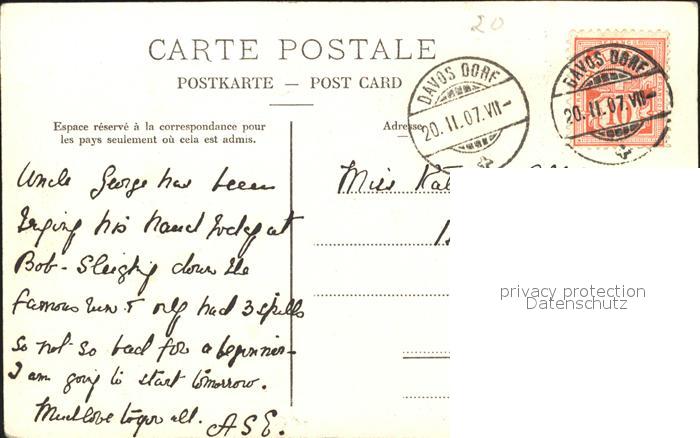 20
CARTE POSTALE
POSTKARTE — POST CARD
DAVOS DORF
20.II.07.VII-
DAVOS DORF
20.II.07.VII-
10
Espace réservé à la correspondance pour
les pays seulement où cela est admis.
Adresse
Uncle George has been
trying his hand today at
Bob-Sleighing down the
famous run & only had 3 spills
so not so bad for a beginner-
I am going to start tomorrow.
Much love to you all. ASE.
Miss
privacy protection
Datenschutz